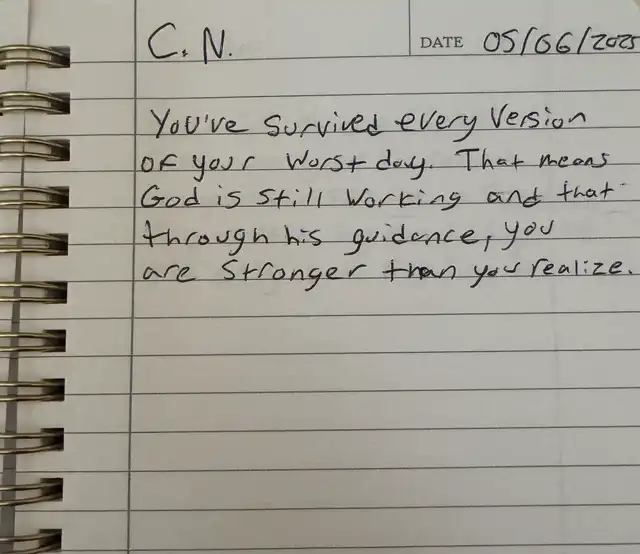 C.N.
DATE 05/06/2025
You've survived every version
of your worst day. That means
God is still working and that
through his guidance, you
are stronger than you realize.